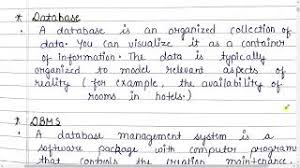 * Database
• A database is an organized collection of
data. You can visualize it as a container
of information. The data is typically
organized to model relevant aspects of
reality (for example, the availability of
rooms in hotels.)
* DBMS
• A database management system is a
software package with computer programs
that controls the creation maintenance